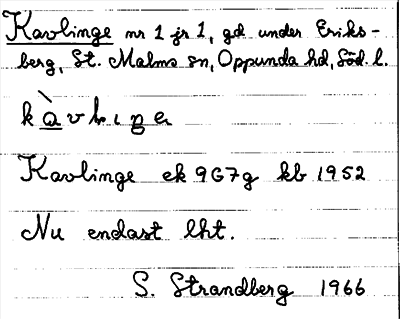 Kavlinge nr 1 jr 1, gd under Eriks-
berg, St. Malms sn, Oppunda hd, Söd. l.
Kavlinge ek 9G7g kb 1952
Nu endast lht.
S. Strandberg 1966